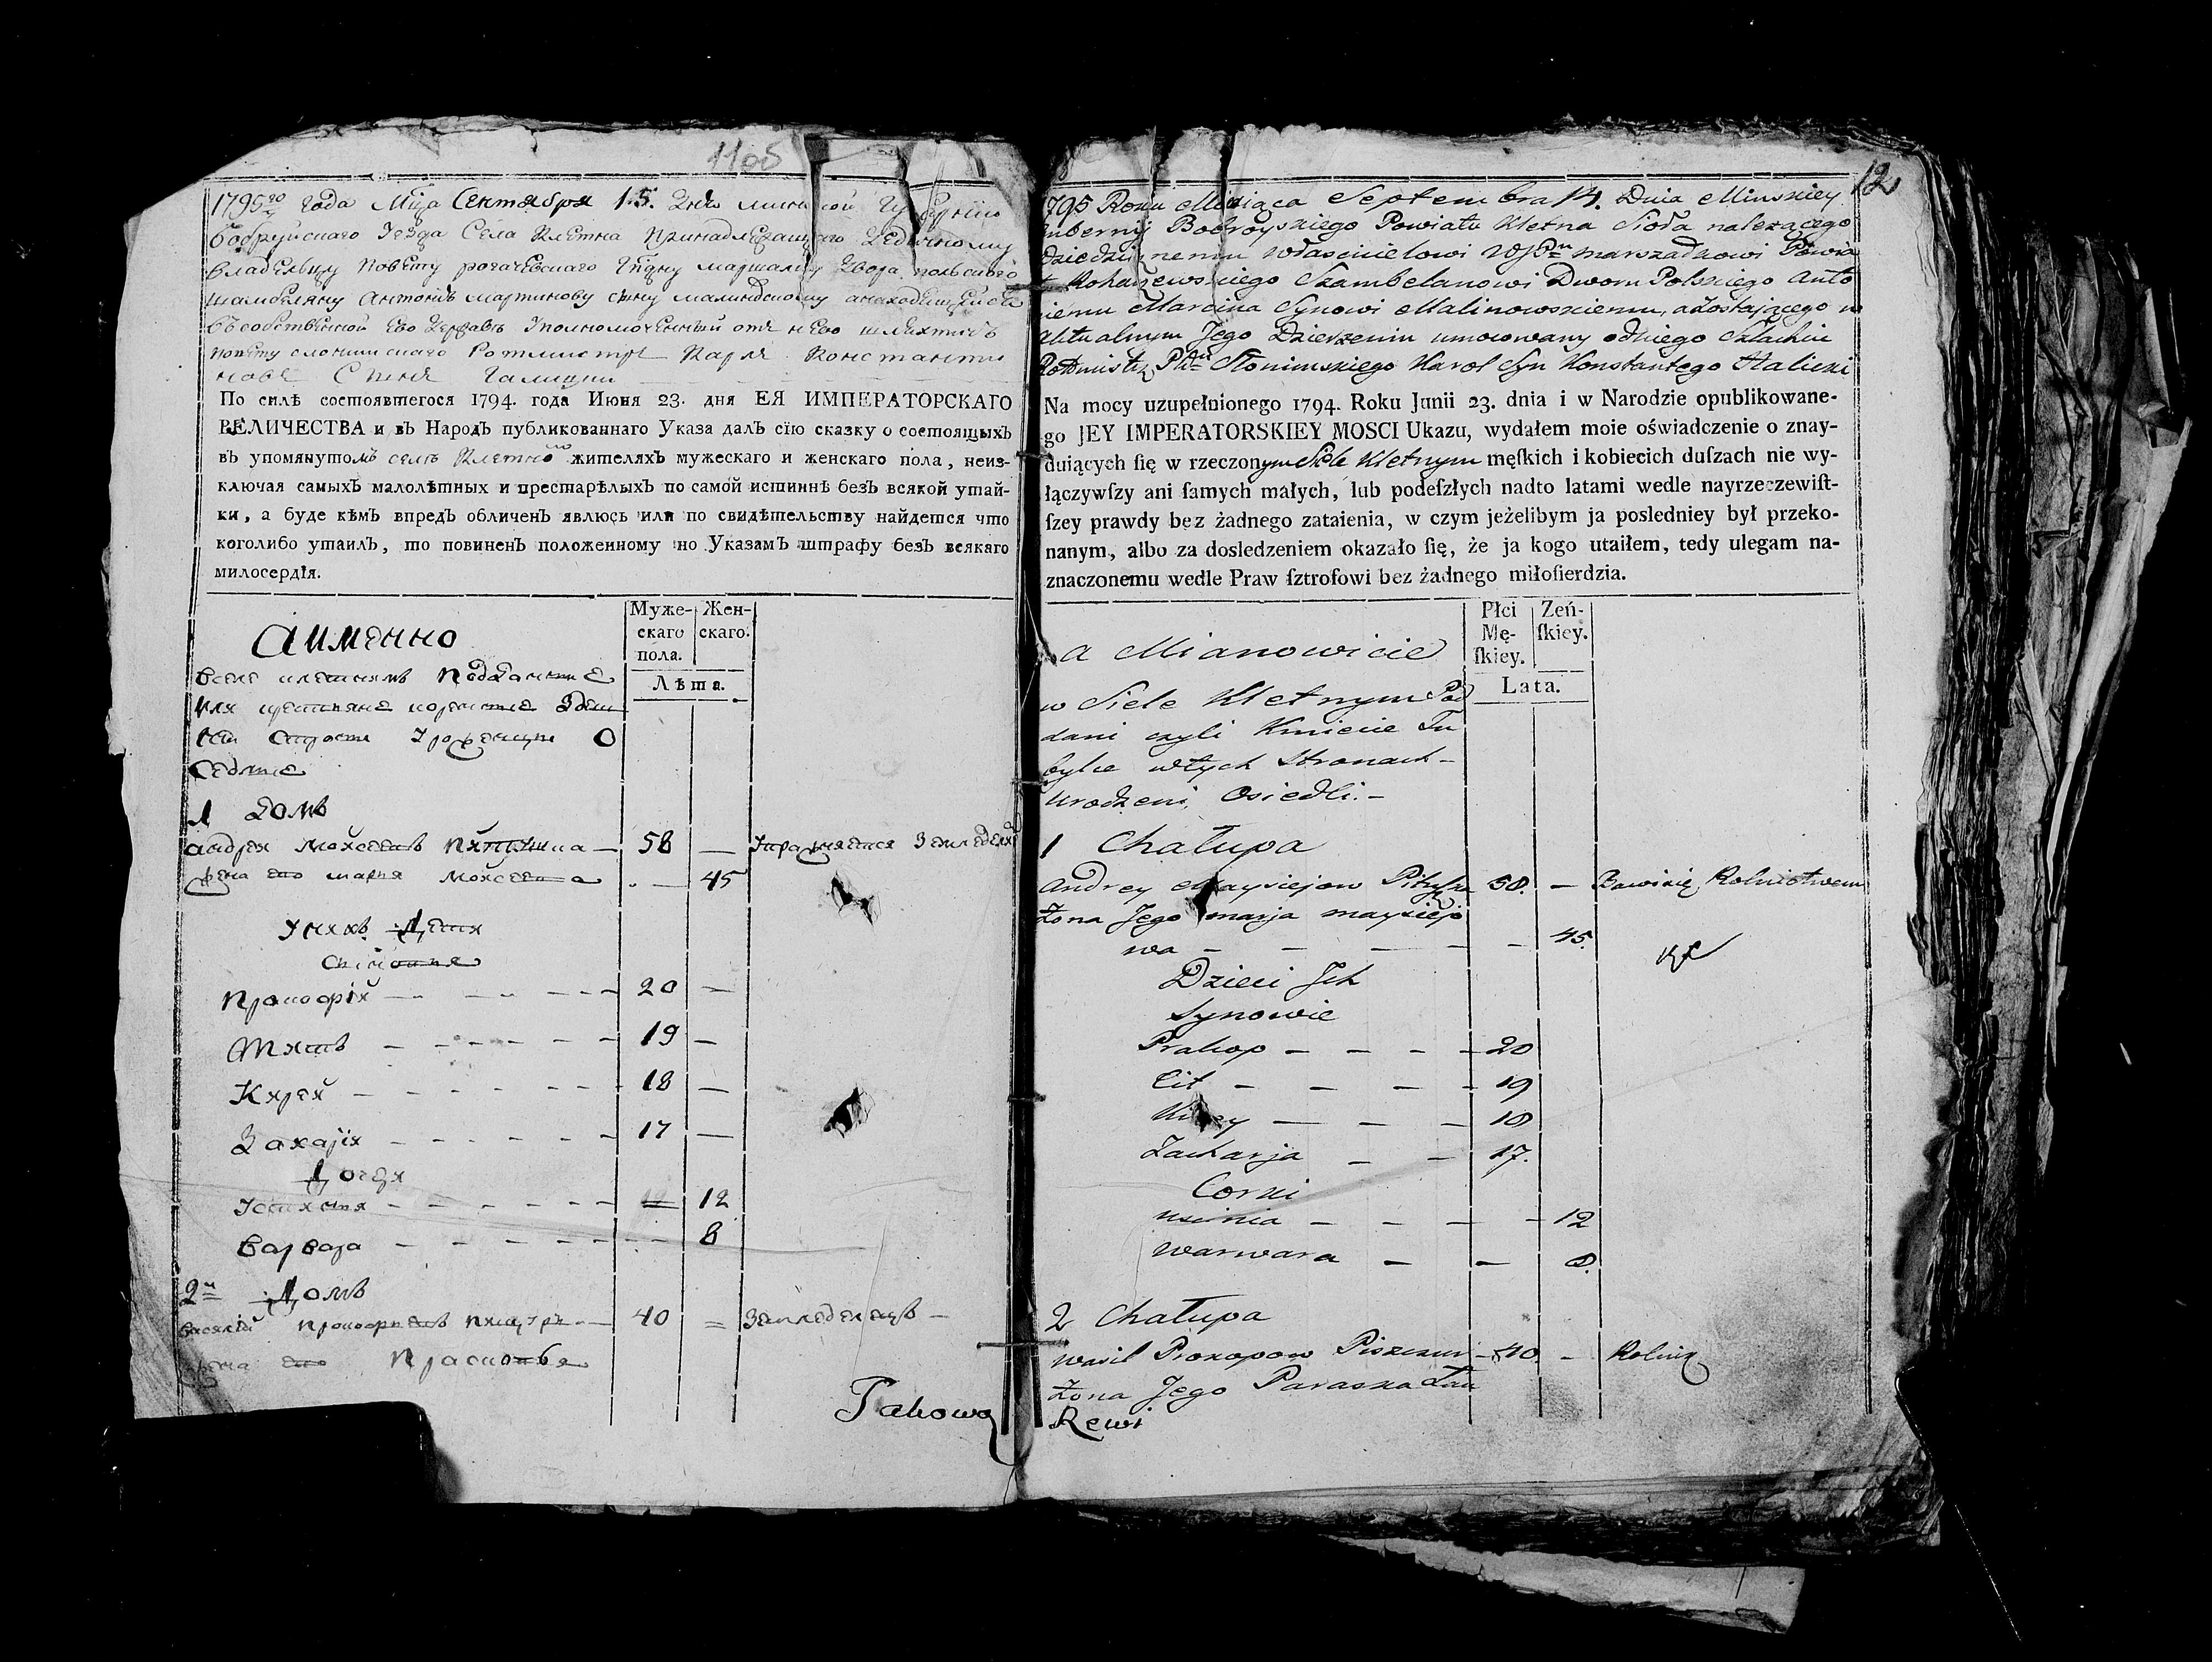 1105
1795го года Мца Сентября 15. дня Минской Губернии
Бобруйскаго уезда Села Клетна принадлежащаго Едичному
Владельцу повету рогачевскаго Гпдну маршалку двора польскаго
шамбеляну Антонию мартинову сыну малиновскому анаходящейся
въ собственной Его Державе уполномоченный отъ него шляхтичъ
повету слонимскаго Ротмистръ Карлъ Константи
новъ Сынъ Галицки
По силѣ состоявшегося 1794. года Июня 23. дня ЕЯ ИМПЕРАТОРСКАГО
ВЕЛИЧЕСТВА и въ Народъ публикованнаго Указа далъ сїю сказку о состоящыхъ
въ упомянутомъ селѣ Клетно жителяхъ мужескаго и женскаго пола, неиз-
ключая самыхъ малолѣтныхъ и престарѣлыхъ по самой истиннѣ безъ всякой утай-
ки, а буде кѣмъ впредъ обличенъ явлюсь или по свидѣтельству найдется что
коголибо утаилъ, то повиненъ положенному по Указамъ штрафу безъ всякаго
милосердїя.
Муже- Жен-
скаго скаго.
пола.
Лѣта.
Аименно
Седлые
1 домъ
Андрей Мойсеевъ — 58 — Упражняется Земледелие
жена его мария Мойсеева — 45
Унихъ Дети
Сыновья
Прокофій 20 —
Титъ 19 —
Кирей 18 —
Захарія 17 —
Дочери
Устиния 12
Варвара 8
2й Домъ
Василій Прокофиевъ 40 = Земледелецъ —
жена его Прасковья
Takowa
12
1795 Roku Miesiąca Septembra 14. Dnia Minskiey
Guberny Bobroyskiego Powiatu Kletna Sioła nalezącego
Dziedzicznemu własnicielowi marszałkowi Powia
tu Rohaczewskiego Szambelanowi Dworu Polskiego Anto
niemu Marcina Synowi Malinowskiemu, a zostającego w
Aktualnym Jego Dzierzeniu umocowany odniego Szlachcic
Rotmistrz Ptu Słonimskiego Karol Syn Konstantego Halicki
Na mocy uzupełnionego 1794. Roku Junii 23. dnia i w Narodzie opublikowane-
go JEY IMPERATORSKIEY MOSCI Ukazu, wydałem moie oświadczenie o znay-
duiących ſię w rzeczonym Siele Kletnym męſkich i kobiecich duſzach nie wy-
łączywſzy ani ſamych małych, lub podeſzłych nadto latami wedle nayrzeczewiſt-
ſzey prawdy bez żadnego zataienia, w czym jeżelibym ja posledniey był przeko-
nanym, albo za dosledzeniem okazało ſię, że ja kogo utaiłem, tedy ulegam na-
znaczonemu wedle Praw ſztrofowi bez żadnego miłoſierdzia.
Płci Zeń-
Mę- ſkiey.
ſkiey.
Lata.
a Mianowicie
w Siele Kletnym Pod
dani czyli Kmiecie Tu
bylce w tych Stronach –
urodzeni, Osiedli. –
1 Chałupa
Andrey Maysiejow 58. — Bawi się Rolnictwem
Zona Jego marja maysiejo
wa — 45.
Dzieci Jch
Synowie
Prakop 20
Cit 19
Kirey 18
Zacharja 17.
Corki
usinia 12
warwara 8.
2 Chałupa
wasil Prokopow 40. – Rolnik
Zona Jego Paraska Ław
Rewi